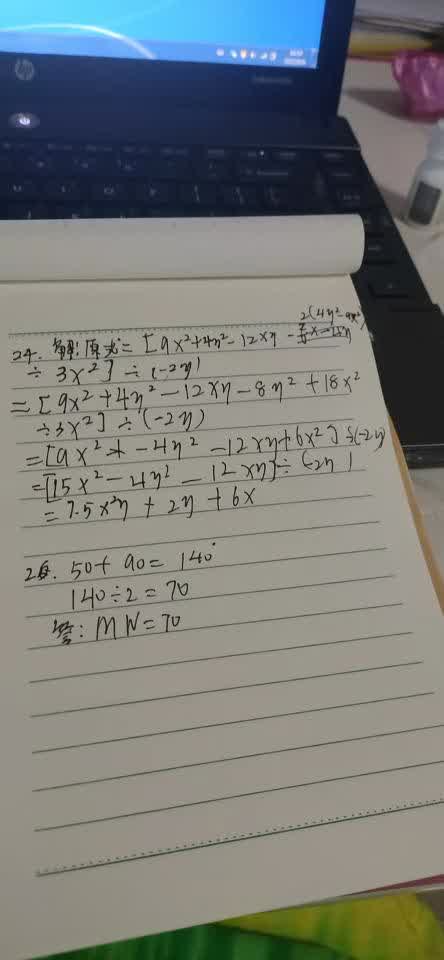 24. 解:原式=[9x²+4y²-12xy-2(4y²-9x²)
÷3x²]÷(-2y)
=[9x²+4y²-12xy-8y²+18x²
÷3x²]÷(-2y)
=[9x²+-4y²-12xy+6x²]÷(-2y)
=[15x²-4y²-12xy]÷(-2y)
=7.5x²y+2y+6x
25. 50+90=140°
140÷2=70
答:MN=70